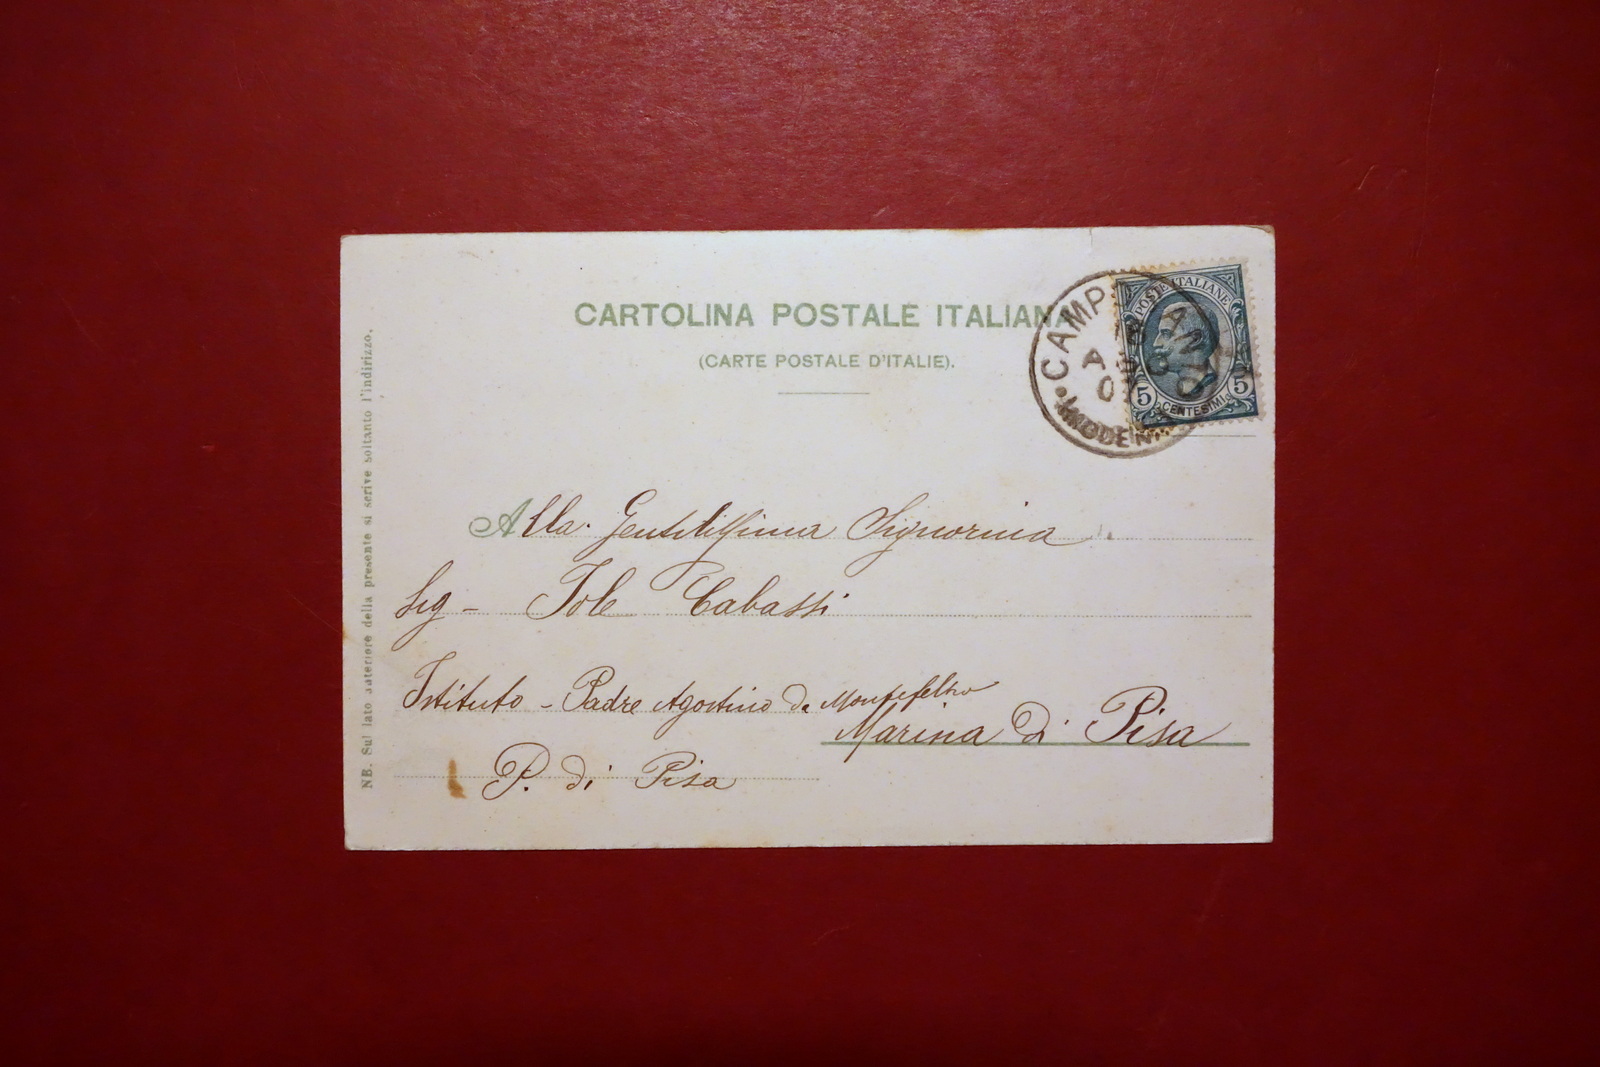 CARTOLINA POSTALE ITALIANA
(CARTE POSTALE D'ITALIE).
POSTE ITALIANE
5 CENTESIMI 5
CAMPOSANTO
(MODENA)
NB. Sul lato anteriore della presente si scrive soltanto l'indirizzo.
Alla Gentilissima Signorina
Sig - Iole Cabassi
Istituto - Padre Agostino Da Montefeltro
Marina Di Pisa
P. di Pisa